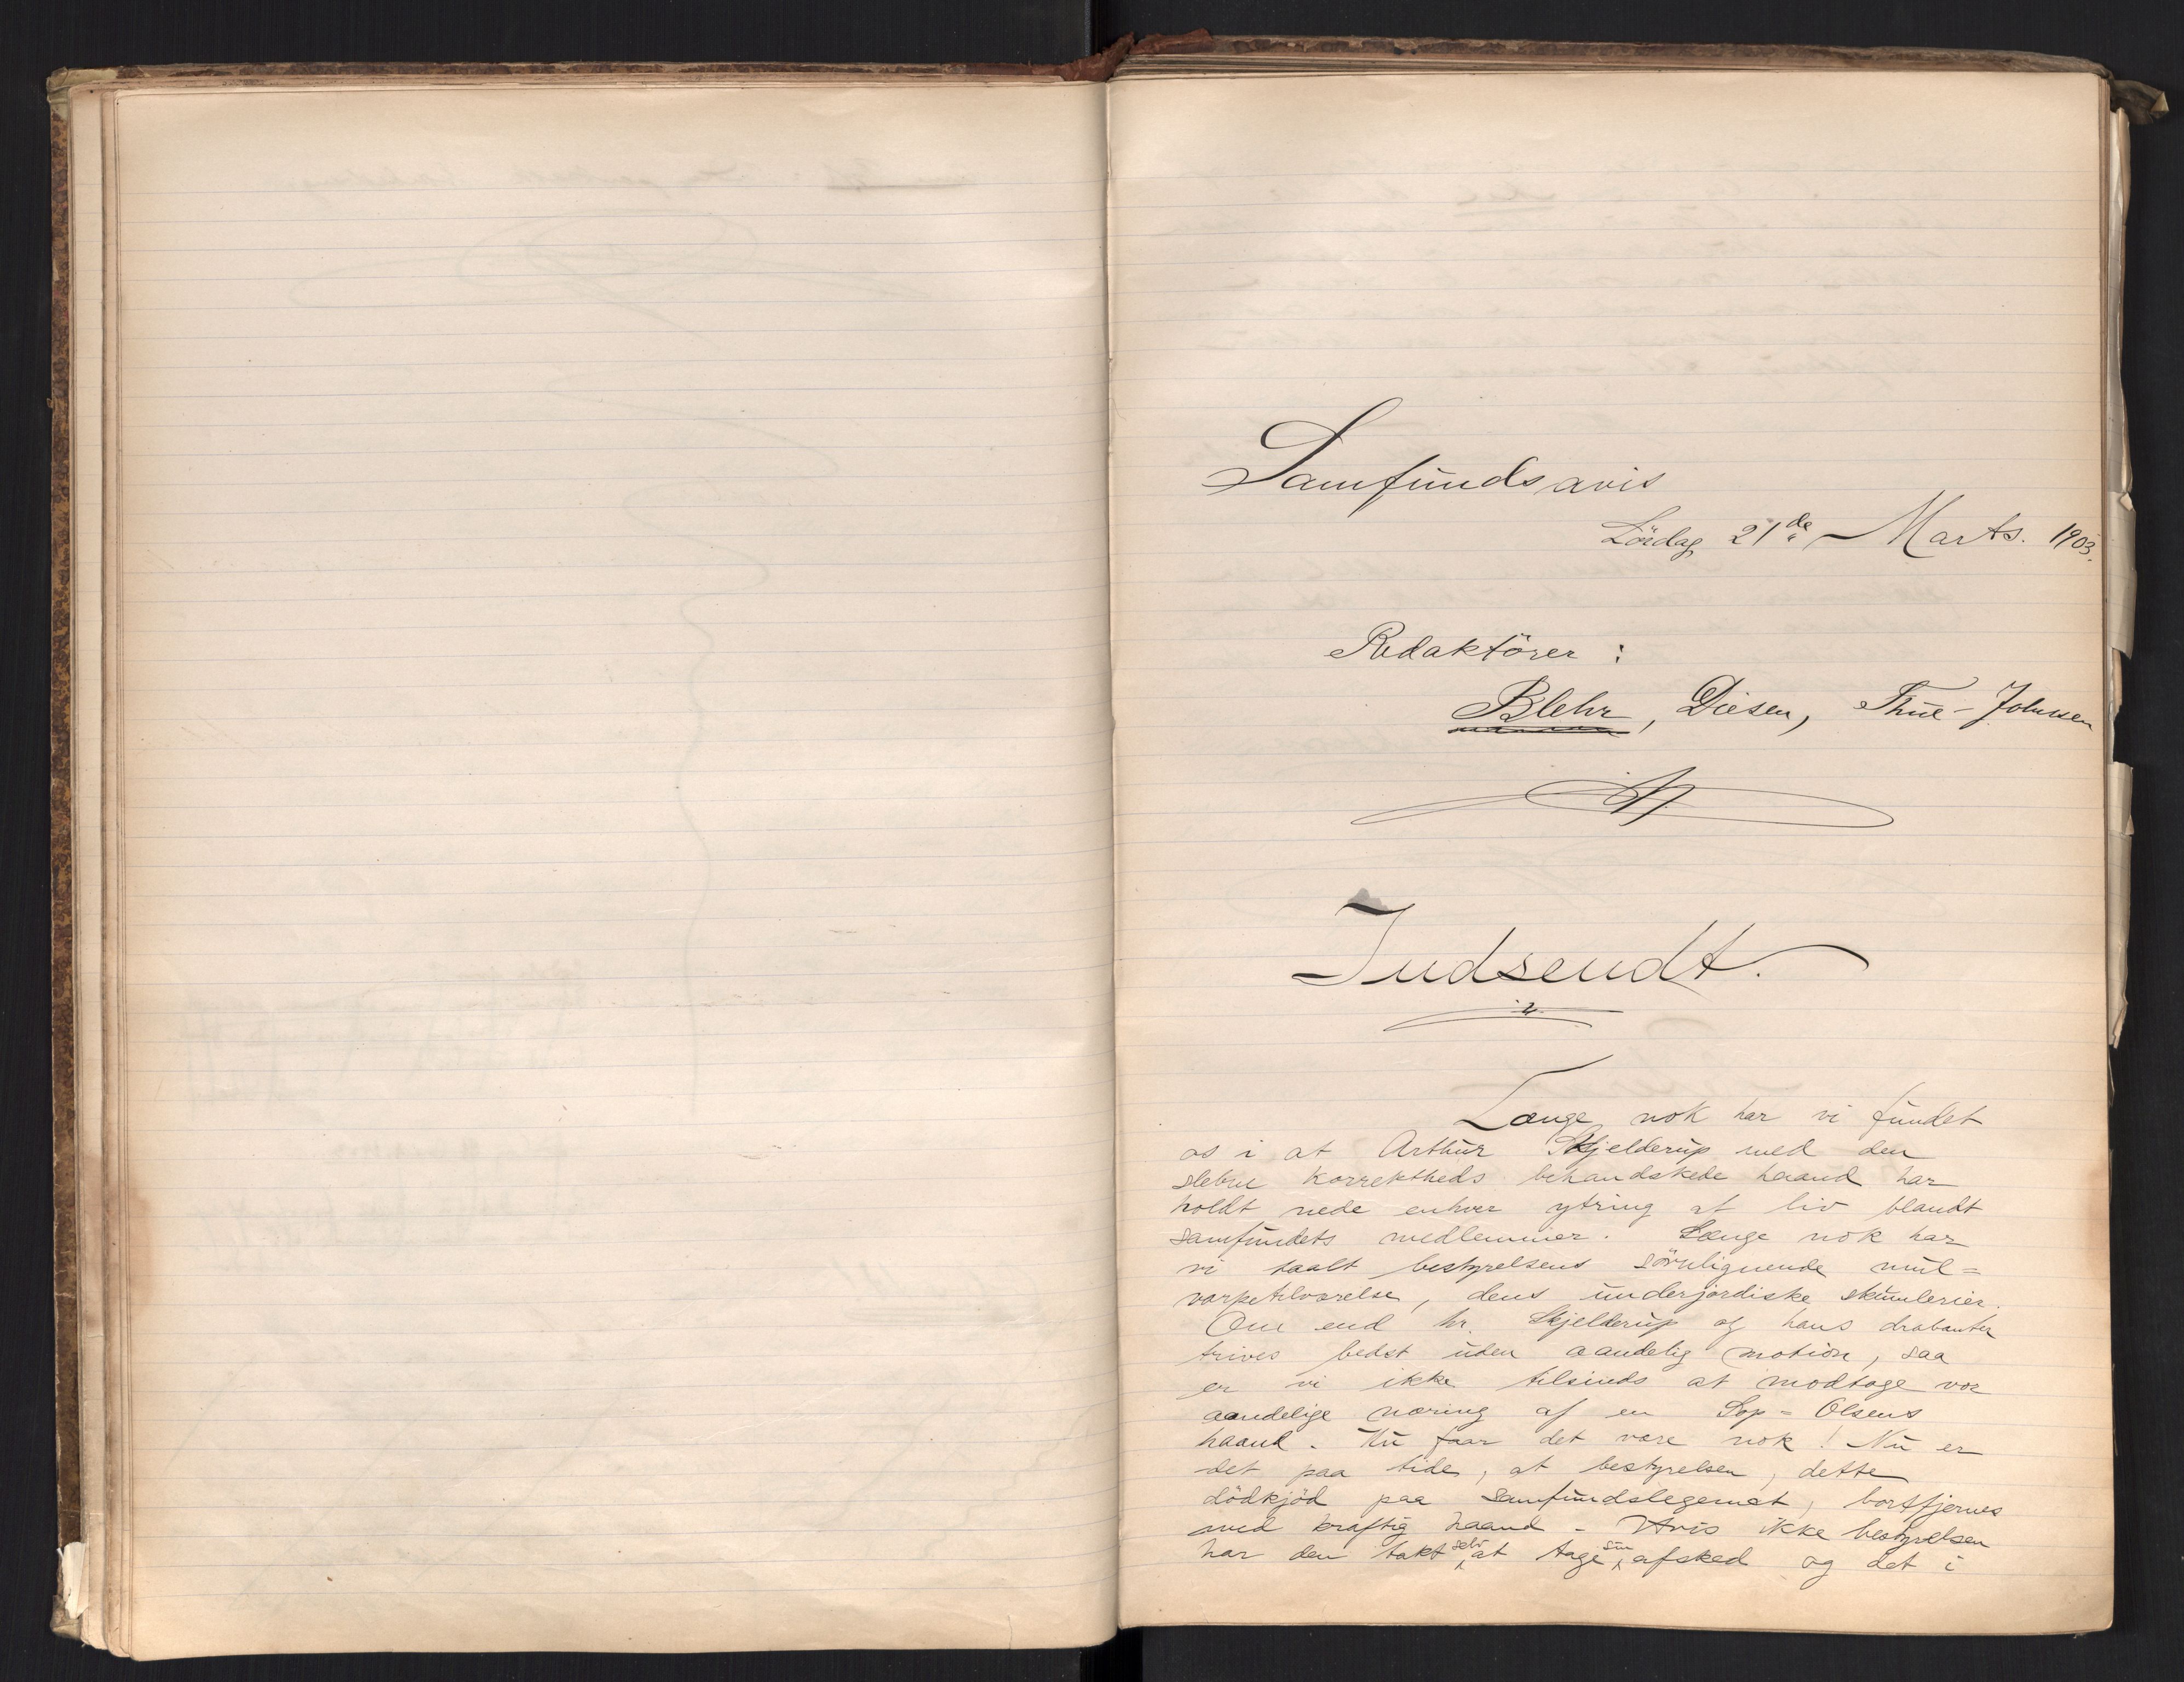 Samfundsavis
Lördag 21de Marts. 1903.
Redaktörer :
Blehr, Diesen, Thue-Johnsen
Indsendt.
Længe nok har vi fundet
os i at Arthur Skjelderup med den
slebne korrektheds behandskede haand har
holdt nede enhver ytring af liv blandt
samfundets medlemmer. Længe nok har
vi taalt bestyrelsens sövnlignende mul=
varpetilværelse, dens underjordiske skumlerier.
Om end hr. Skjelderup og hans drabanter
trives bedst uden aandelig motion, saa
er vi ikke tilsinds at modtage vor
aandelige næring af en Sop=Olsens
haand. Nu faar det være nok! Nu er
det paa tide, at bestyrelsen, dette
dödkjöd paa samfundslegemet, bortfjernes
med kraftig haand - Hvis ikke bestyrelsen
har den takt selv at tage sin afsked og det i